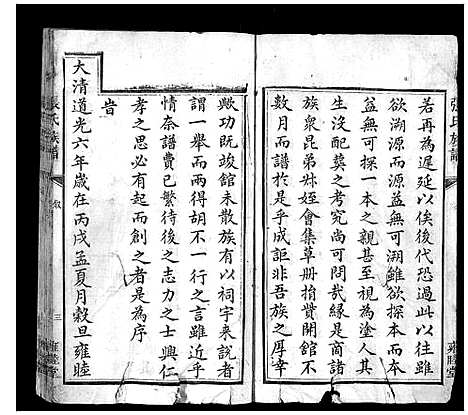 若再為遲延以俟後代恐過此以往雖
欲溯源而源益無可溯雖欲探本而本
益無可探一本之親甚至視為塗人其
生沒配葬之考究尚可問哉緣是商諸
族眾昆弟姪會集草冊捐貲開館不
數月而譜於是乎成詎非吾族之厚幸
歟功既竣館未散族有以祠宇來說者
謂一舉而兩得胡不一行之言雖近乎
情奈譜費已繁待後之志力之士興仁
孝之思必有起而創之者是為序
旹
大清道光六年歲在丙戌孟夏月穀旦雍睦
張氏族譜
敘
三
雍睦堂